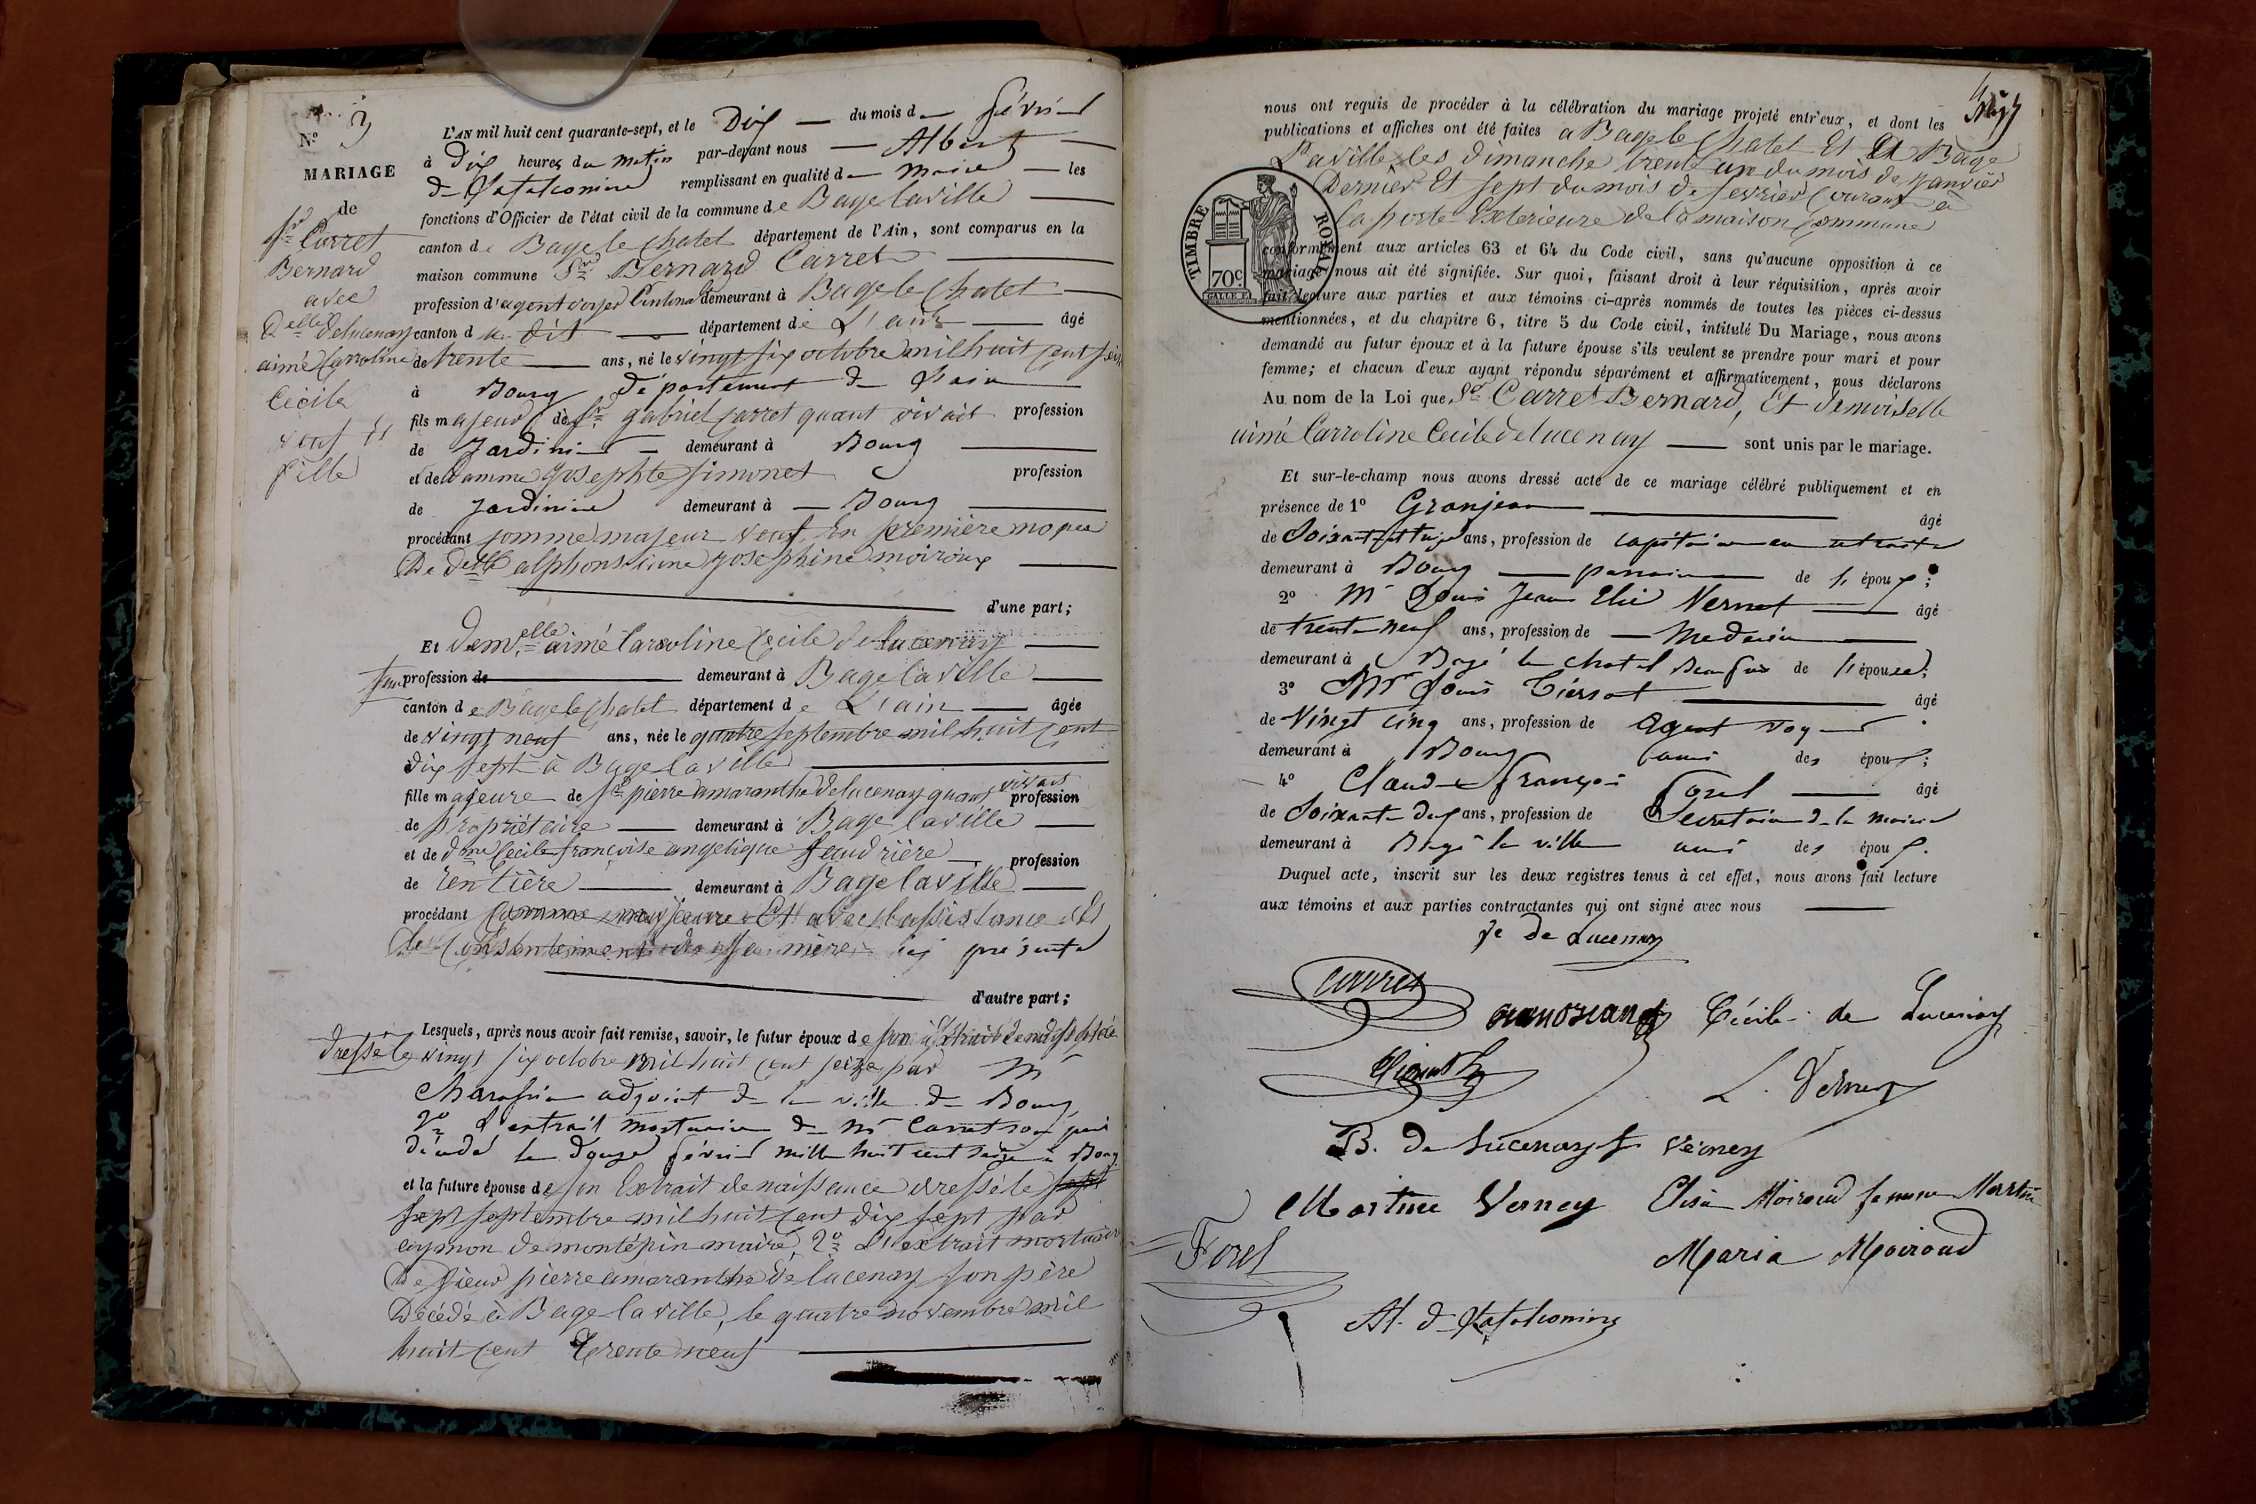 N° 3
MARIAGE
de
Sr Carret
Bernard
avec
Delle delucenay
aimé Carroline
Cécile
veuf et
fille
L'AN mil huit cent quarante-sept, et le Dix du mois de février
à Dix heures du matin par-devant nous Albert
de remplissant en qualité de maire les
fonctions d'Officier de l'état civil de la commune de Bage laville
canton de Bage le Chatel département de l'Ain, sont comparus en la
maison commune Sr Bernard Carret
profession d'agent voyer demeurant à Bage le Chatel
canton du dit département de L'ain âgé
de trente ans, né le vingt six octobre mil huit cent seize
à Bourg département de l'ain
fils majeur de Sr gabriel Carret quant vivait profession
de Jardinier demeurant à Bourg
et de damme josephte simonet profession
de Jardinière demeurant à Bourg
procédant comme majeur veuf en première noces
De delle alphonssinne josephine moiroux
d'une part;
Et demelle aimé Carroline Cécile de lucenay
profession de demeurant à Bage laville
canton de Bage le Chatel département de L'ain âgée
de vingt neuf ans, née le quatre septembre mil huit cent
dix sept à Bage la ville
fille majeure de Sr pierre amaranthe delucenay quant vivait profession
de propriétaire demeurant à Bage laville
et de dme Cecile françoise angelique feudrière profession
de rentière demeurant à Bage laville
procédant Comme majeure Et avec l'assistance et
le Consentement de sa mère ici présente
d'autre part;
Lesquels, après nous avoir fait remise, savoir, le futur époux de son extrait de naissance
dressé le vingt six octobre mil huit cent seize par Mr
adjoint de la ville de Bourg
2° L'extrait mortuaire de Mr Carret son père
décédé le douze février mille huit cent seize à Bourg
et la future épouse de son Extrait de naissance dressé le sept
sept septembre mil huit cent dix sept par
aymon de montépin maire, 2° L'extrait mortuaire
De sieur pierre amaranthe de lucenay son père
Décédé à Bage la ville, le quatre novembre mil
huit cent trente neuf
nous ont requis de procéder à la célébration du mariage projeté entr'eux, et dont les
publications et affiches ont été faites a Bage le Chatel Et Et Bage
laville les dimanche trente un du mois de janvier
Dernier Et sept du mois de fevrier Courant à
la porte Exterieure de la maison Commune
TIMBRE ROYAL
70c.
conformément aux articles 63 et 64 du Code civil, sans qu'aucune opposition à ce
mariage nous ait été signifiée. Sur quoi, faisant droit à leur réquisition, après avoir
fait lecture aux parties et aux témoins ci-après nommés de toutes les pièces ci-dessus
mentionnées, et du chapitre 6, titre 5 du Code civil, intitulé Du Mariage, nous avons
demandé au futur époux et à la future épouse s'ils veulent se prendre pour mari et pour
femme; et chacun d'eux ayant répondu séparément et affirmativement, nous déclarons
Au nom de la Loi que Sr Carret Bernard, Et demoiselle
aimé Carroline Cecile delucenay sont unis par le mariage.
Et sur-le-champ nous avons dressé acte de ce mariage célébré publiquement et en
présence de 1° Granjean âgé
de ans, profession de capitaine en retraite
demeurant à Bourg parrain de l'époux;
2° Mr Louis Jean Elie Vernet âgé
de trente neuf ans, profession de Medecin
demeurant à Bagé le chatel Beau frère de l'épouse;
3° Mr Louis Tiersot âgé
de Vingt cinq ans, profession de agent voyer
demeurant à Bourg ami des époux;
4° Claude françois Forel âgé
de Soixante dix ans, profession de Secretaire de la mairie
demeurant à Bagé la ville ami des époux.
Duquel acte, inscrit sur les deux registres tenus à cet effet, nous avons fait lecture
aux témoins et aux parties contractantes qui ont signé avec nous
fe De Lucenay
Carret
Cécile de Lucenay
B. de Lucenay f Verney
Martine Verney Elisa Moiroud femme Martin
Maria Moiroud
Forel